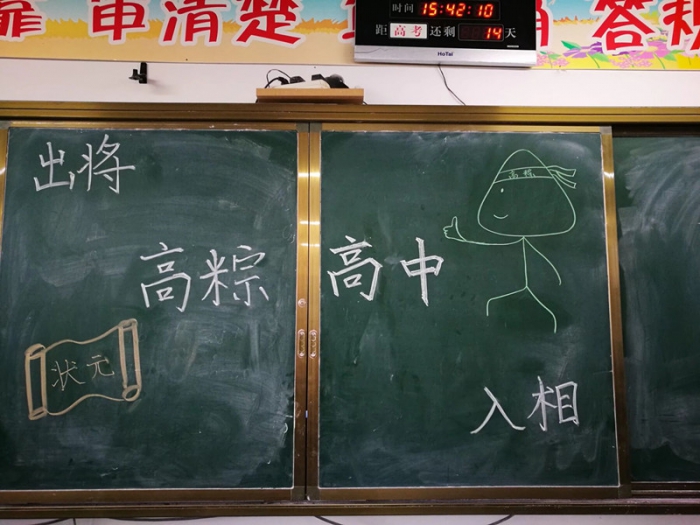 审清楚
答
时间 15:42:10
距 高考 还剩 14 天
HuTai
出将
高粽
高粽 高中
状元
入相